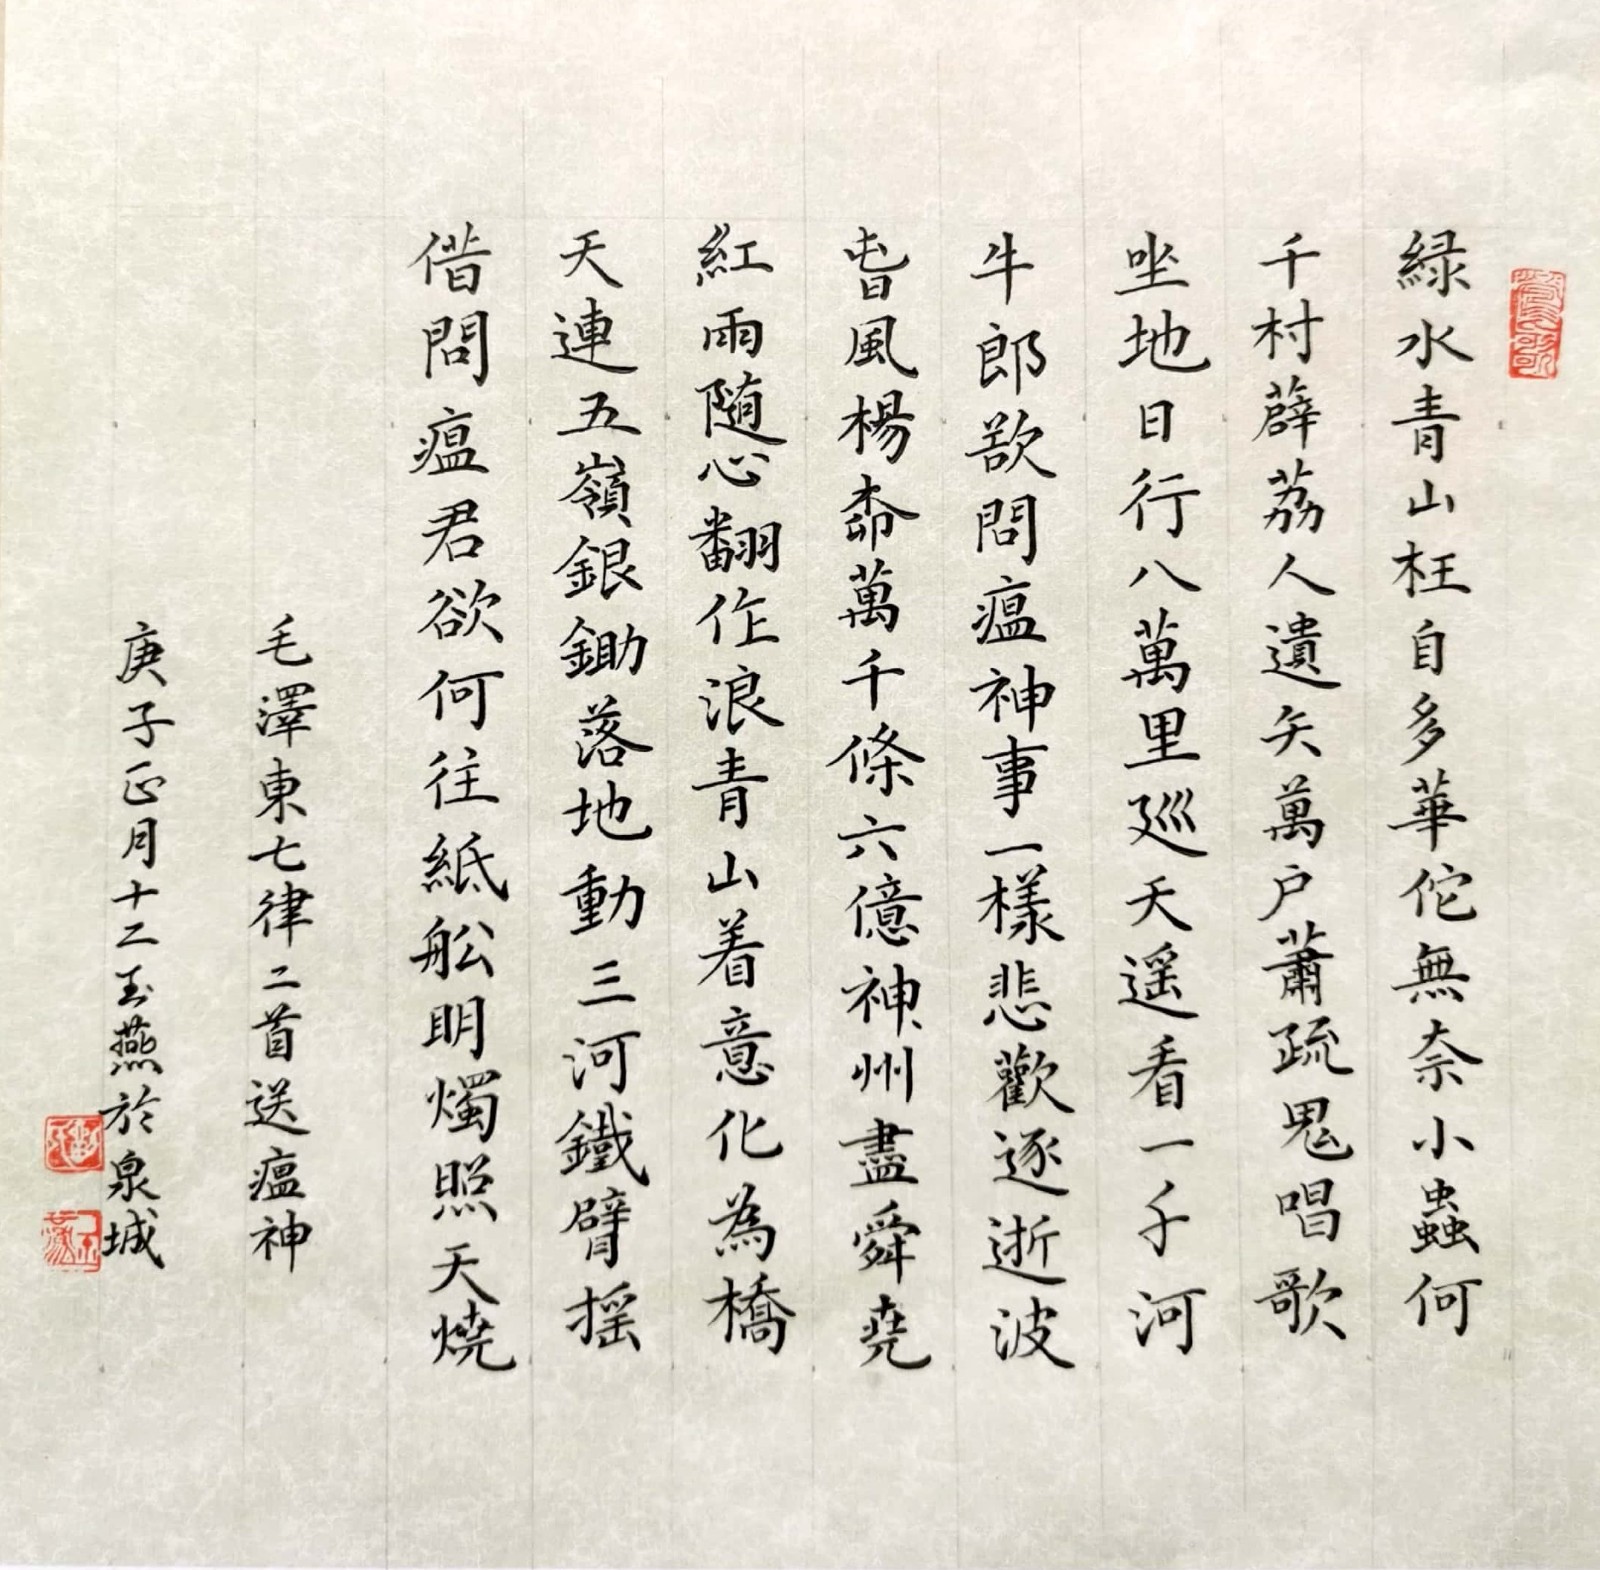 緑水青山枉自多華佗無奈小蟲何
千村薜荔人遺矢萬户蕭疏鬼唱歌
坐地日行八萬里巡天遥看一千河
牛郎欲問瘟神事一樣悲歡逐逝波
旾風楊桺萬千條六億神州盡舜堯
紅雨随心翻作浪青山着意化為橋
天連五嶺銀鋤落地動三河鐵臂摇
借問瘟君欲何往紙船明燭照天燒
毛澤東七律二首送瘟神
庚子正月十二玉燕於泉城